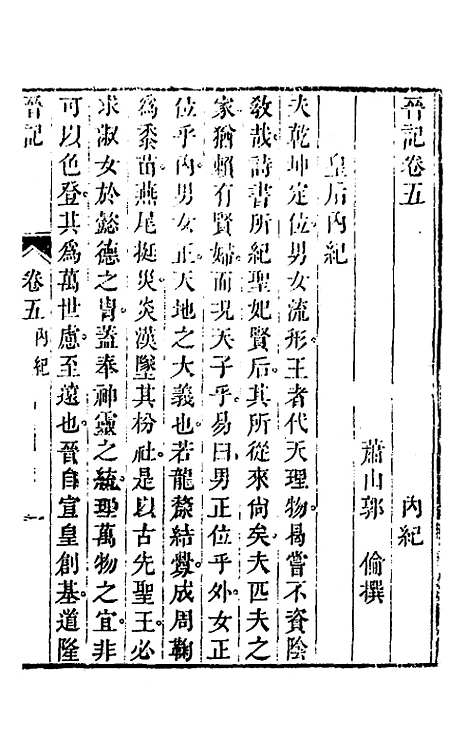 晉記卷五 內紀
蕭山郭 倫撰
皇后內紀
夫乾坤定位男女流形王者代天理物曷嘗不資陰
敎哉詩書所紀聖妃賢后其所從來尙矣夫匹夫之
家猶賴有賢婦而況天子乎易曰男正位乎外女正
位乎內男女正天地之大義也若龍漦結釁成周鞠
爲黍苗燕尾挺災炎漢墜其枌社是以古先聖王必
求淑女於懿德之冑蓋奉神靈之統理萬物之宜非
可以色登其爲萬世慮至遠也晉自宣皇創基道隆
晉記 卷五 內紀 一